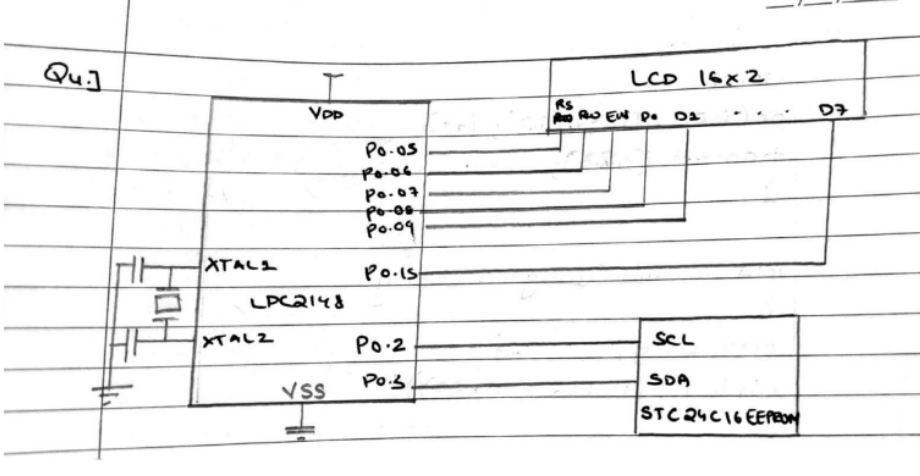 Qu.]
LCD 16x2
RS RW EN D0 D1 . . . . D7
VDD
P0.05
P0.06
P0.07
P0.08
P0.09
XTAL1
P0.15
LPC2148
XTAL2
P0.2
SCL
P0.3
SDA
VSS
STC24C16 EEPROM